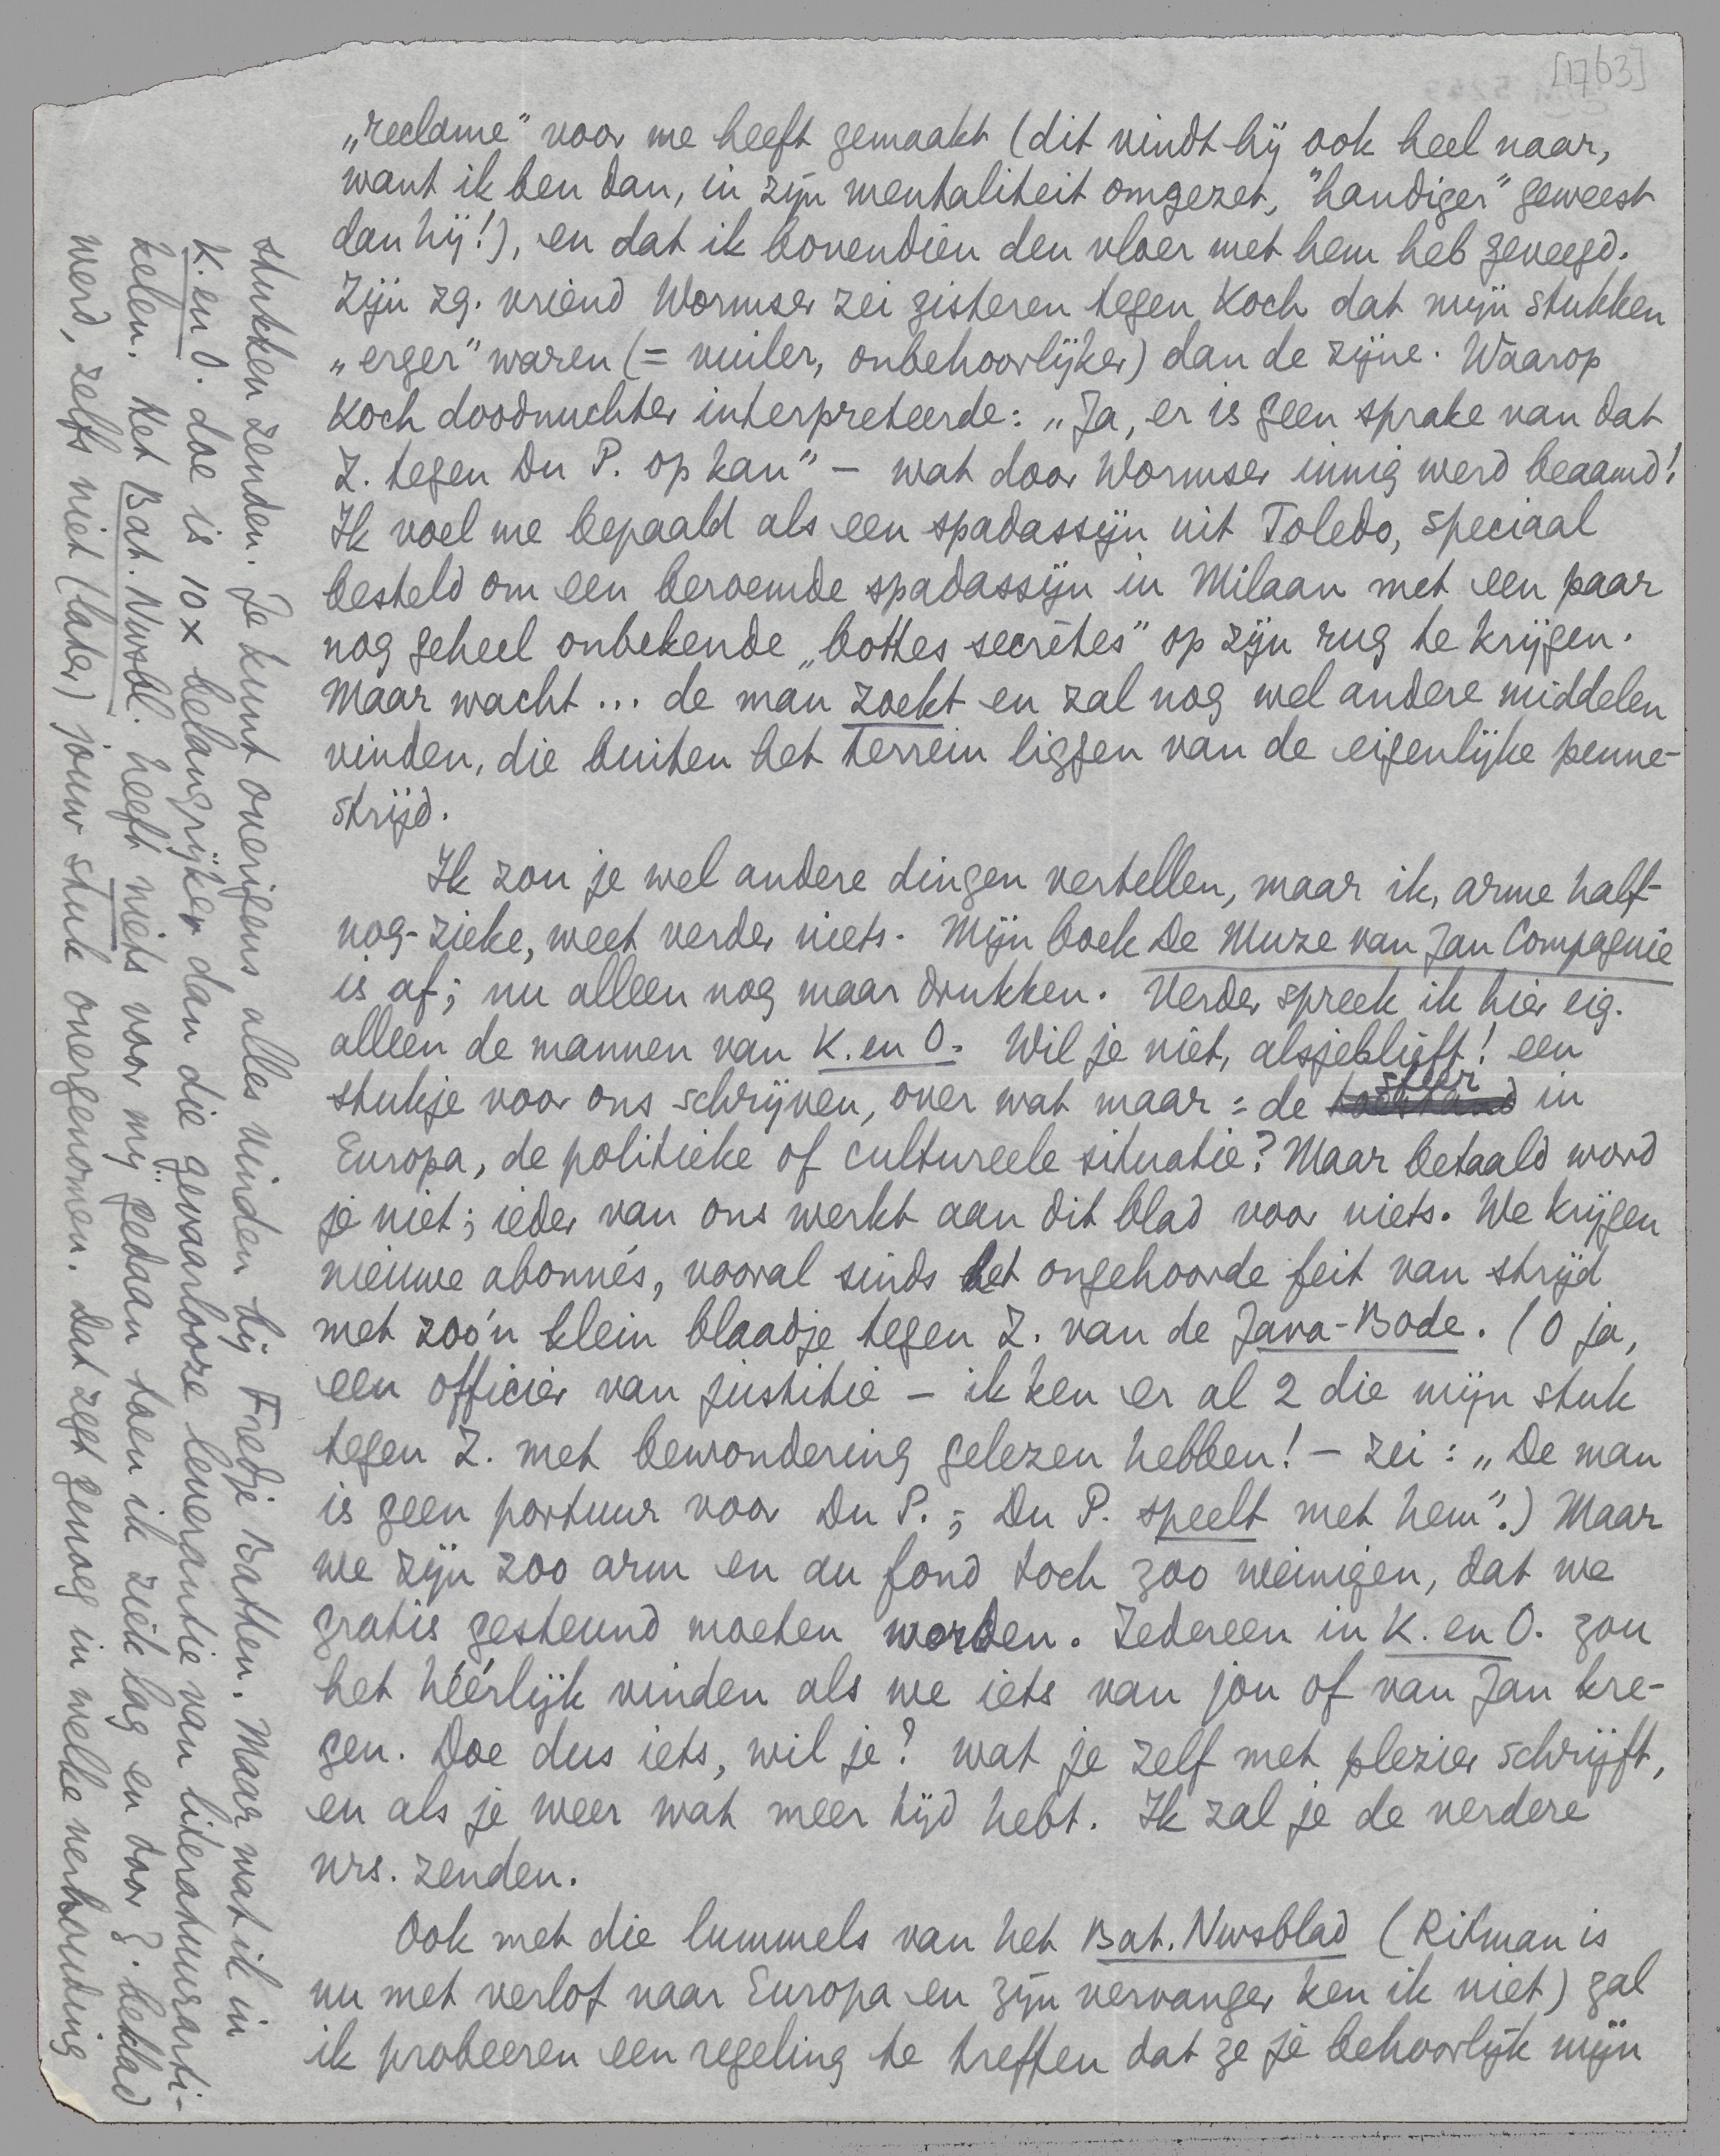 [1763]
„reclame" voor me heeft gemaakt (dit vindt hij ook heel naar,
want ik ben dan, in zijn mentaliteit omgezet, "handiger" geweest
dan hij!), en dat ik bovendien den vloer met hem heb geveegd.
Zijn zg. vriend Wormser zei gisteren tegen Koch dat mijn stukken
„erger" waren (= vuiler, onbehoorlijker) dan de zijne. Waarop
Koch doodnuchter interpreteerde: „Ja, er is geen sprake van dat
Z. tegen Du P. op kan" – wat door Wormser innig werd beaamd!
Ik voel me bepaald als een spadassijn uit Toledo, speciaal
besteld om een beroemde spadassijn in Milaan met een paar
nog geheel onbekende „bottes secrètes" op zijn rug te krijgen.
Maar wacht... de man zoekt en zal nog wel andere middelen
vinden, die buiten het terrein liggen van de eigenlijke penne-
strijd.
Ik zou je wel andere dingen vertellen, maar ik, arme half-
nog-zieke, weet verder niets. Mijn boek De Muze van Jan Compagnie
is af; nu alleen nog maar drukken. Verder spreek ik hier eig.
alleen de mannen van K. en O. Wil je niet, alsjeblieft! een
stukje voor ons schrijven, over wat maar: de toestand sfeer in
Europa, de politieke of cultureele situatie? Maar betaald word
je niet; ieder van ons werkt aan dit blad voor niets. We krijgen
nieuwe abonnés, vooral sinds het ongehoorde feit van strijd
met zoo'n klein blaadje tegen Z. van de Java-Bode. (O ja,
een officier van justitie – ik ken er al 2 die mijn stuk
tegen Z. met bewondering gelezen hebben! – zei: „De man
is geen partuur voor Du P.; Du P. speelt met hem".) Maar
we zijn zoo arm en au fond toch zoo weinigen, dat we
gratis gesteund moeten worden. Iedereen in K. en O. zou
het héérlijk vinden als we iets van jou of van Jan kre-
gen. Doe dus iets, wil je? wat je zelf met plezier schrijft,
en als je weer wat meer tijd hebt. Ik zal je de verdere
nrs. zenden.
Ook met die lummels van het Bat. Nwsblad (Ritman is
nu met verlof naar Europa en zijn vervanger ken ik niet) zal
ik probeeren een regeling te treffen dat ze je behoorlijk mijn
stukken zenden. Je kunt overigens alles vinden bij Fredje Batten. Maar wat ik in
K. en O. doe is 10 x belangrijker dan die gevaarlooze leverantie van literatuurarti-
kelen. Het Bat. Nwsbl. heeft niets voor mij gedaan toen ik ziek lag en door Z. beklad
werd, zelfs niet (later) jouw stuk overgenomen. Dat zegt genoeg in welke verhouding